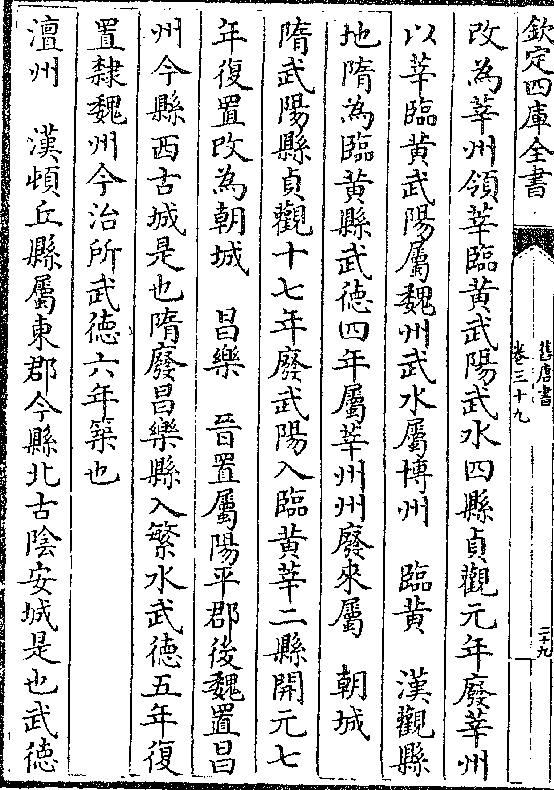 欽定四庫全書
舊唐書
卷三十九
二十九
改為莘州領莘臨黄武陽武水四縣貞觀元年廢莘州
以莘臨黄武陽屬魏州武水屬博州　臨黄　漢觀縣
地隋為臨黄縣武徳四年屬莘州州廢來屬　朝城
隋武陽縣貞觀十七年廢武陽入臨黄莘二縣開元七
年復置改為朝城　昌樂　晉置屬陽平郡後魏置昌
州今縣西古城是也隋廢昌樂縣入繁水武徳五年復
置隸魏州今治所武徳六年築也
澶州　漢頓丘縣屬東郡今縣北古陰安城是也武徳